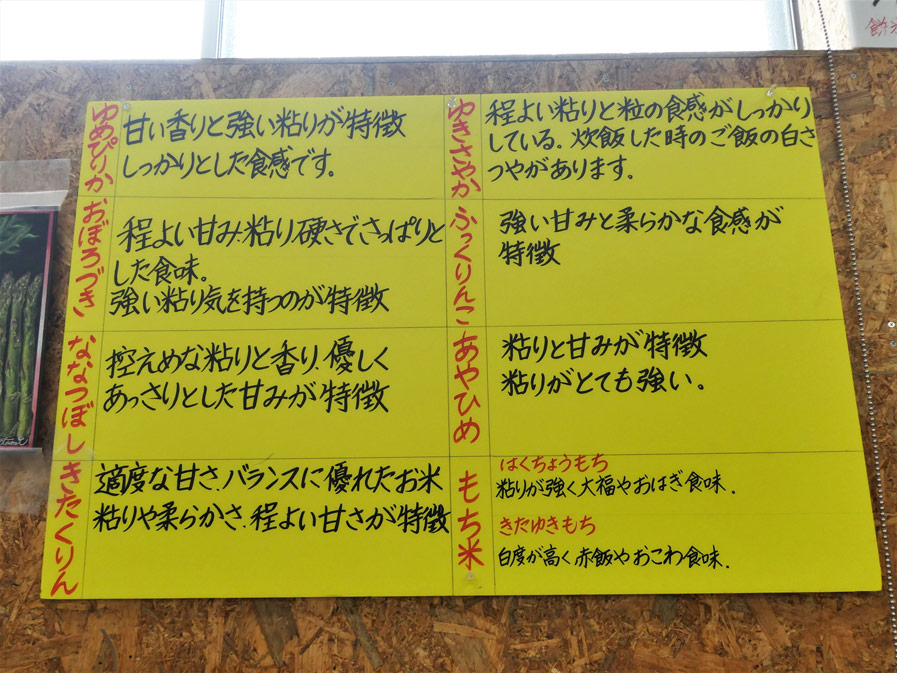 ゆめぴりか
甘い香りと強い粘りが特徴
しっかりとした食感です。
おぼろづき
程よい甘み、粘り、硬さでさっぱりと
した食味。
強い粘り気を持つのが特徴
ななつぼし
控えめな粘りと香り、優しく
あっさりとした甘みが特徴
きたくりん
適度な甘さ、バランスに優れたお米
粘りや柔らかさ、程よい甘さが特徴
ゆきさやか
程よい粘りと粒の食感がしっかり
している。炊飯した時のご飯の白さ
つやがあります。
ふっくりんこ
強い甘みと柔らかな食感が
特徴
あやひめ
粘りと甘みが特徴
粘りがとても強い。
もち米
はくちょうもち
粘りが強く大福やおはぎ食味、
きたゆきもち
白度が高く赤飯やおこわ食味、